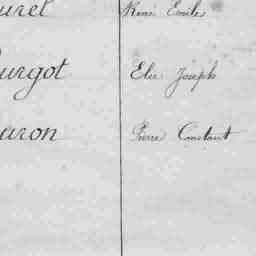 urel René Emile
urgot Elie Joseph
uron Pierre Constant